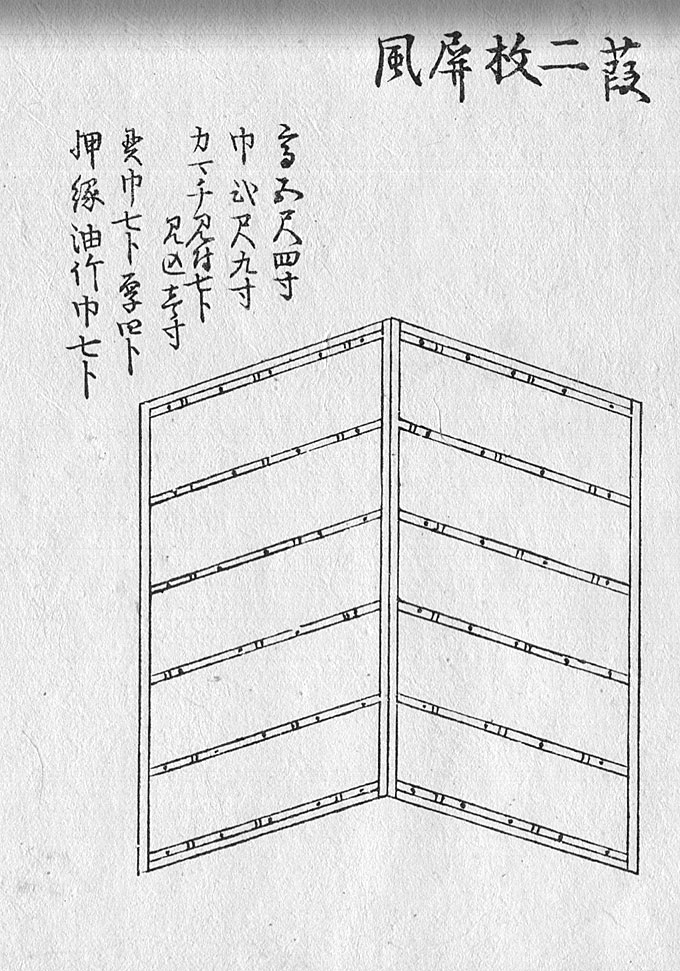 葭二枚屏風
高五尺四寸
巾弐尺九寸
カマチ見付七卜
見込壱寸
貫巾七卜厚四卜
押縁油竹巾七卜